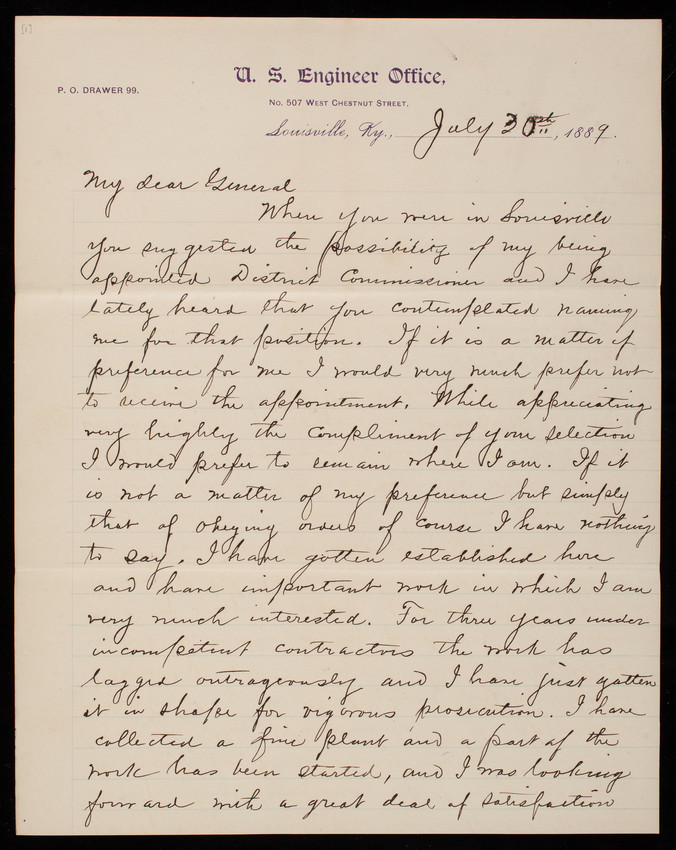 [1]
U. S. Engineer Office,
P. O. DRAWER 99.
No. 507 WEST CHESTNUT STREET,
Louisville, Ky., July 30th, 1889.
My dear General
When you were in Louisville
you suggested the possibility of my being
appointed District Commissioner and I have
lately heard that you contemplated naming
me for that position. If it is a matter of
preference for me I would very much prefer not
to receive the appointment. While appreciating
very highly the compliment of your selection
I would prefer to remain where I am. If it
is not a matter of my preference but simply
that of obeying orders of course I have nothing
to say. I have gotten established here
and have important work in which I am
very much interested. For three years under
incompetent contractors the work has
lagged outrageously and I have just gotten
it in shape for vigorous prosecution. I have
collected a fine plant and a part of the
work has been started, and I was looking
forward with a great deal of satisfaction